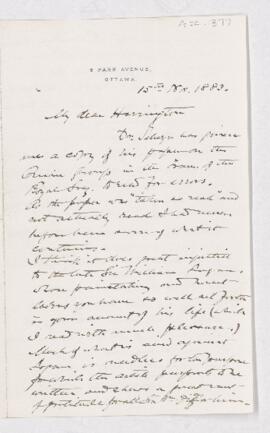 9 PARK AVENUE,
OTTAWA.
15th Nov. 1883.
My dear Harrington
Dr. Selwyn has given
me a copy of his paper on the
Quebec Group in the Trans. of the
Royal Soc. to read for errors.
As the paper was "taken as read" and
not actually read I had never
before been aware of what it
contains.
I think it does great injustice
to the late Sir William Logan
whose painstaking and
labors you have so well set forth
in your account of his life (which
I read with much pleasure.)
Much of what is said against
Logan is needless for the purpose
for which the article purports to be
written and shews a great want
of gratitude for all Sir Wm.